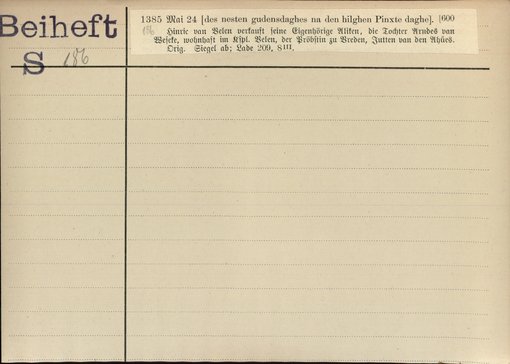 Beiheft
S 186
1385 Mai 24 [des nesten gudensdaghes na den hilghen Pinxte daghe]. [600
186 Hinric van Velen verkauft seine Eigenhörige Aliken, die Tochter Arndes van
Weseke, wohnhaft im Kspl. Velen, der Pröbstin zu Vreden, Jutten van den Ahües.
Orig. Siegel ab; Lade 209, 8III.